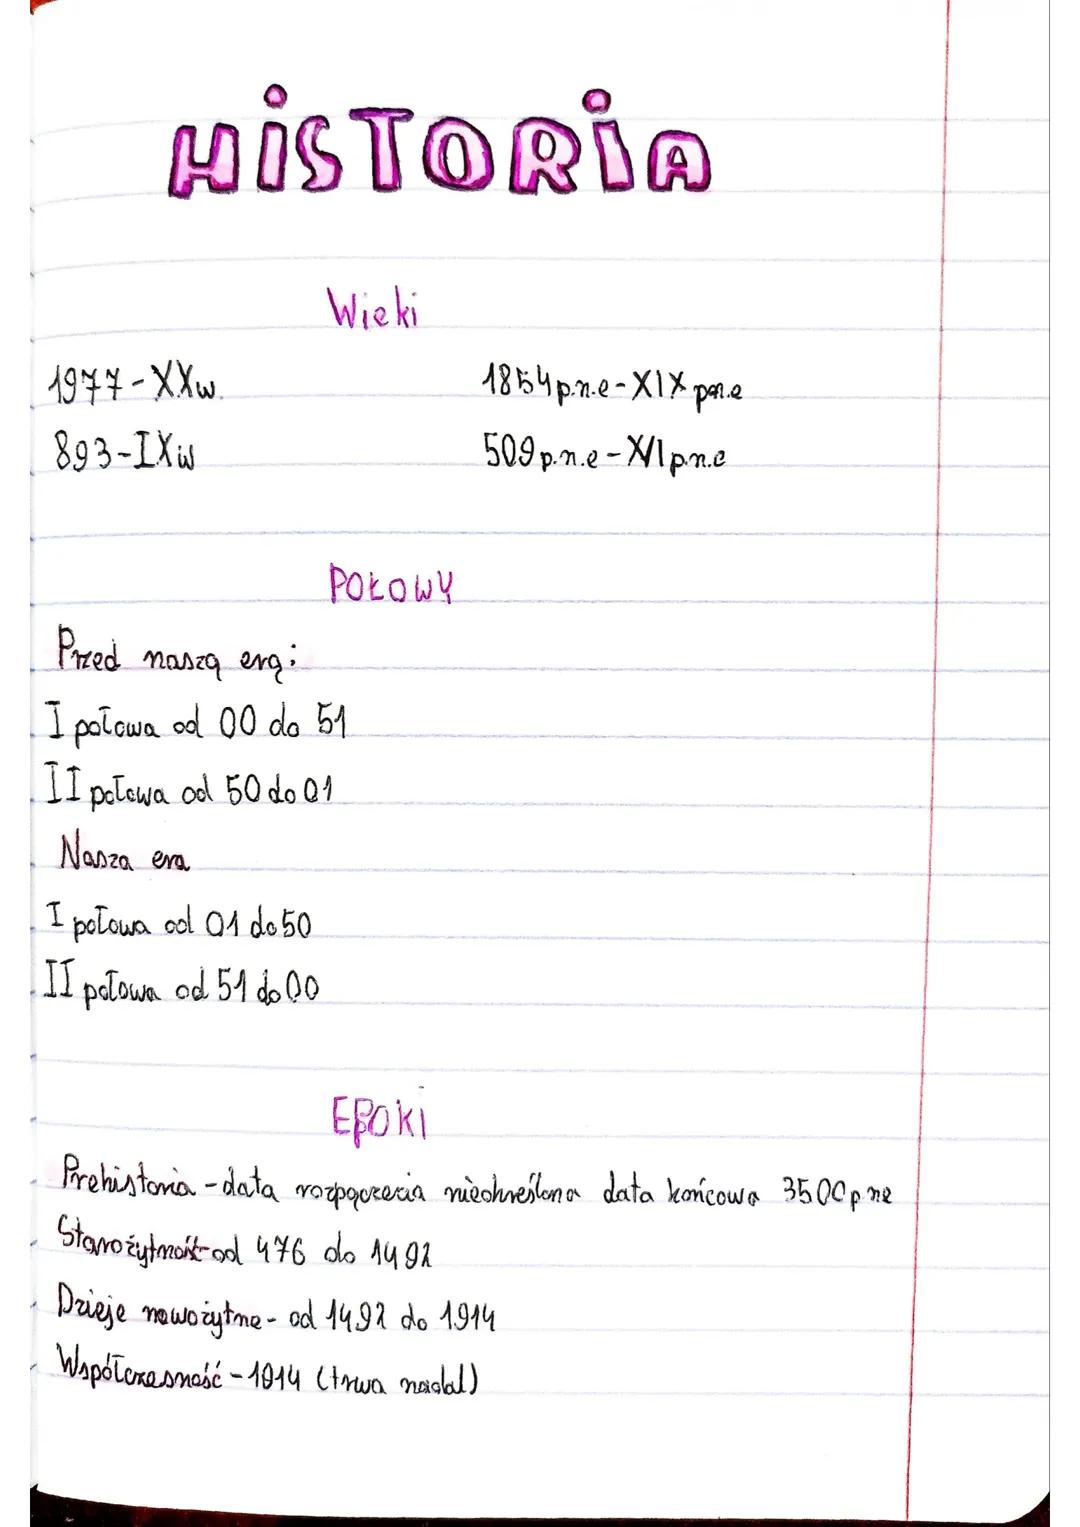 HiSTORiA
Wieki
1977-XXw.
1854 p.n.e-XIX p.n.e
893-IXw
509 p.n.e-VI p.n.e
POŁOWY
Przed naszą erą:
I połowa od 00 do 51
II połowa od 50 do 01
Nasza era
I połowa od 01 do 50
II połowa od 51 do 00
EPOKI
Prehistoria - data rozpoczęcia nieokreślona data końcowa 3500 p.ne
Starożytność-od 476 do 1492
Dzieje nowożytne- od 1492 do 1914
Współczesność - 1914 (trwa nadal)